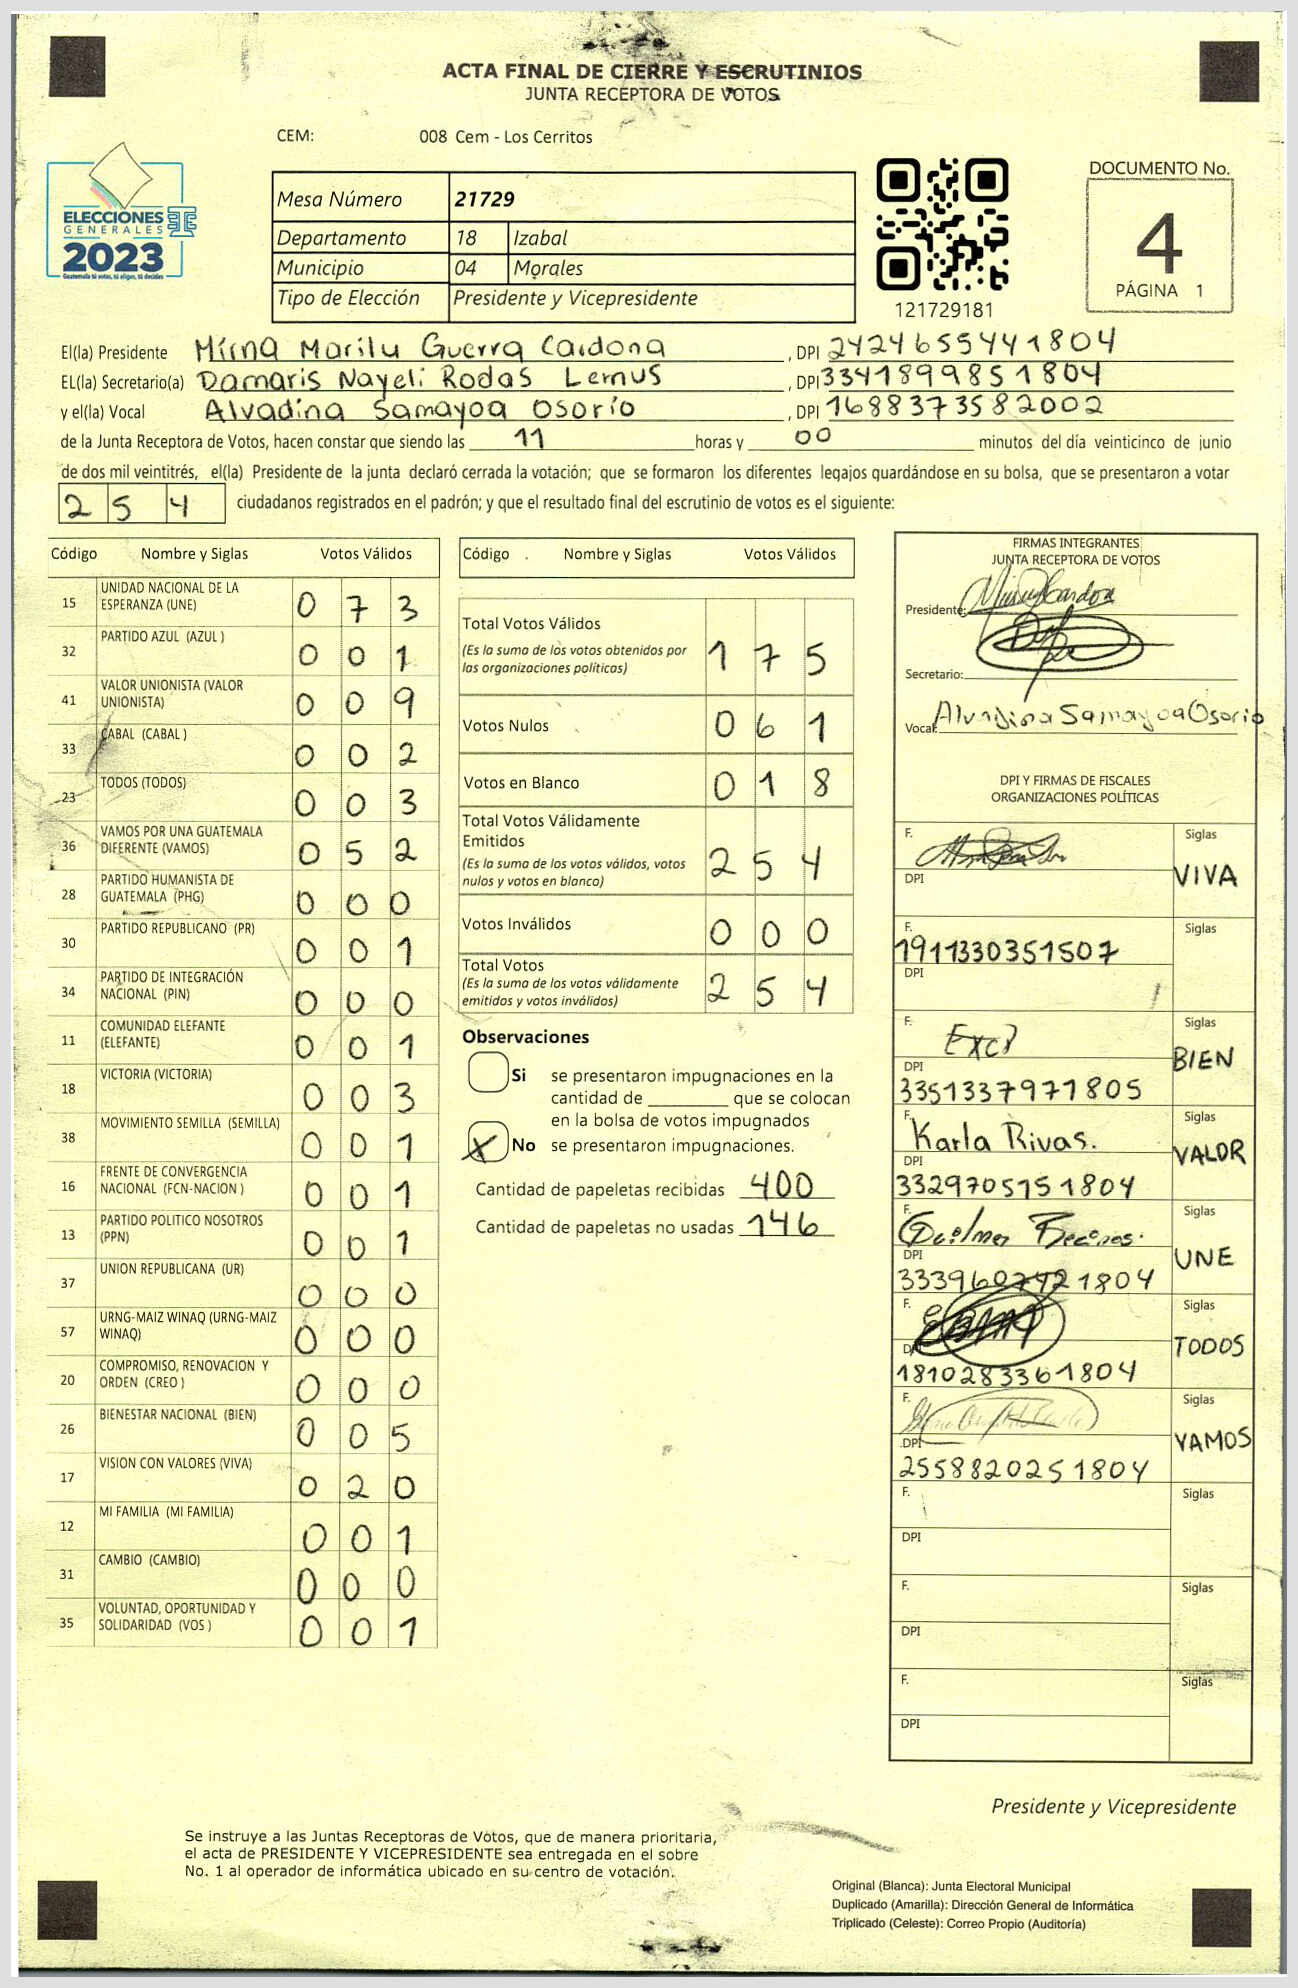 ACTA FINAL DE CIERRE Y ESCRUTINIOS
JUNTA RECEPTORA DE VOTOS
CEM: 008 Cem - Los Cerritos
ELECCIONES
GENERALES
2023
Guatemala tú votas, tú eliges, tú decides
Mesa Número 21729
Departamento 18 Izabal
Municipio 04 Morales
Tipo de Elección Presidente y Vicepresidente
121729181
DOCUMENTO No.
4
PÁGINA 1
El(la) Presidente Mirna Marilu Guerra Cardona , DPI 2424655441804
EL(la) Secretario(a) Damaris Nayeli Rodas Lemus , DPI 3341899851804
y el(la) Vocal Alvadina Samayoa Osorio , DPI 1688373582002
de la Junta Receptora de Votos, hacen constar que siendo las 11 horas y 00 minutos del día veinticinco de junio
de dos mil veintitrés, el(la) Presidente de la junta declaró cerrada la votación; que se formaron los diferentes legajos guardándose en su bolsa, que se presentaron a votar
2 5 4 ciudadanos registrados en el padrón; y que el resultado final del escrutinio de votos es el siguiente:
Código Nombre y Siglas Votos Válidos
15 UNIDAD NACIONAL DE LA ESPERANZA (UNE) 0 7 3
32 PARTIDO AZUL (AZUL ) 0 0 1
41 VALOR UNIONISTA (VALOR UNIONISTA) 0 0 9
33 CABAL (CABAL ) 0 0 2
23 TODOS (TODOS) 0 0 3
36 VAMOS POR UNA GUATEMALA DIFERENTE (VAMOS) 0 5 2
28 PARTIDO HUMANISTA DE GUATEMALA (PHG) 0 0 0
30 PARTIDO REPUBLICANO (PR) 0 0 1
34 PARTIDO DE INTEGRACIÓN NACIONAL (PIN) 0 0 0
11 COMUNIDAD ELEFANTE (ELEFANTE) 0 0 1
18 VICTORIA (VICTORIA) 0 0 3
38 MOVIMIENTO SEMILLA (SEMILLA) 0 0 1
16 FRENTE DE CONVERGENCIA NACIONAL (FCN-NACION ) 0 0 1
13 PARTIDO POLITICO NOSOTROS (PPN) 0 0 1
37 UNION REPUBLICANA (UR) 0 0 0
57 URNG-MAIZ WINAQ (URNG-MAIZ WINAQ) 0 0 0
20 COMPROMISO, RENOVACION Y ORDEN (CREO ) 0 0 0
26 BIENESTAR NACIONAL (BIEN) 0 0 5
17 VISION CON VALORES (VIVA) 0 2 0
12 MI FAMILIA (MI FAMILIA) 0 0 1
31 CAMBIO (CAMBIO) 0 0 0
35 VOLUNTAD, OPORTUNIDAD Y SOLIDARIDAD (VOS ) 0 0 1
Código Nombre y Siglas Votos Válidos
Total Votos Válidos 1 7 5
(Es la suma de los votos obtenidos por
las organizaciones políticas)
Votos Nulos 0 6 1
Votos en Blanco 0 1 8
Total Votos Válidamente
Emitidos 2 5 4
(Es la suma de los votos válidos, votos
nulos y votos en blanco)
Votos Inválidos 0 0 0
Total Votos 2 5 4
(Es la suma de los votos válidamente
emitidos y votos inválidos)
Observaciones
Si se presentaron impugnaciones en la
cantidad de ________ que se colocan
en la bolsa de votos impugnados
X No se presentaron impugnaciones.
Cantidad de papeletas recibidas 400
Cantidad de papeletas no usadas 146
FIRMAS INTEGRANTES
JUNTA RECEPTORA DE VOTOS
Presidente:
Secretario:
Vocal: Alvadina Samayoa Osorio
DPI Y FIRMAS DE FISCALES
ORGANIZACIONES POLÍTICAS
F. Siglas
DPI VIVA
F. Siglas
1911330351507
DPI
F. Siglas
BIEN
DPI
3351337971805
F. Karla Rivas. Siglas
DPI VALOR
3329705151804
F. Siglas
DPI UNE
3339607421804
F. Siglas
DPI TODOS
1810283361804
F. Siglas
DPI VAMOS
2558820251804
F. Siglas
DPI
F. Siglas
DPI
F. Siglas
DPI
Presidente y Vicepresidente
Se instruye a las Juntas Receptoras de Votos, que de manera prioritaria,
el acta de PRESIDENTE Y VICEPRESIDENTE sea entregada en el sobre
No. 1 al operador de informática ubicado en su centro de votación.
Original (Blanca): Junta Electoral Municipal
Duplicado (Amarilla): Dirección General de Informática
Triplicado (Celeste): Correo Propio (Auditoría)